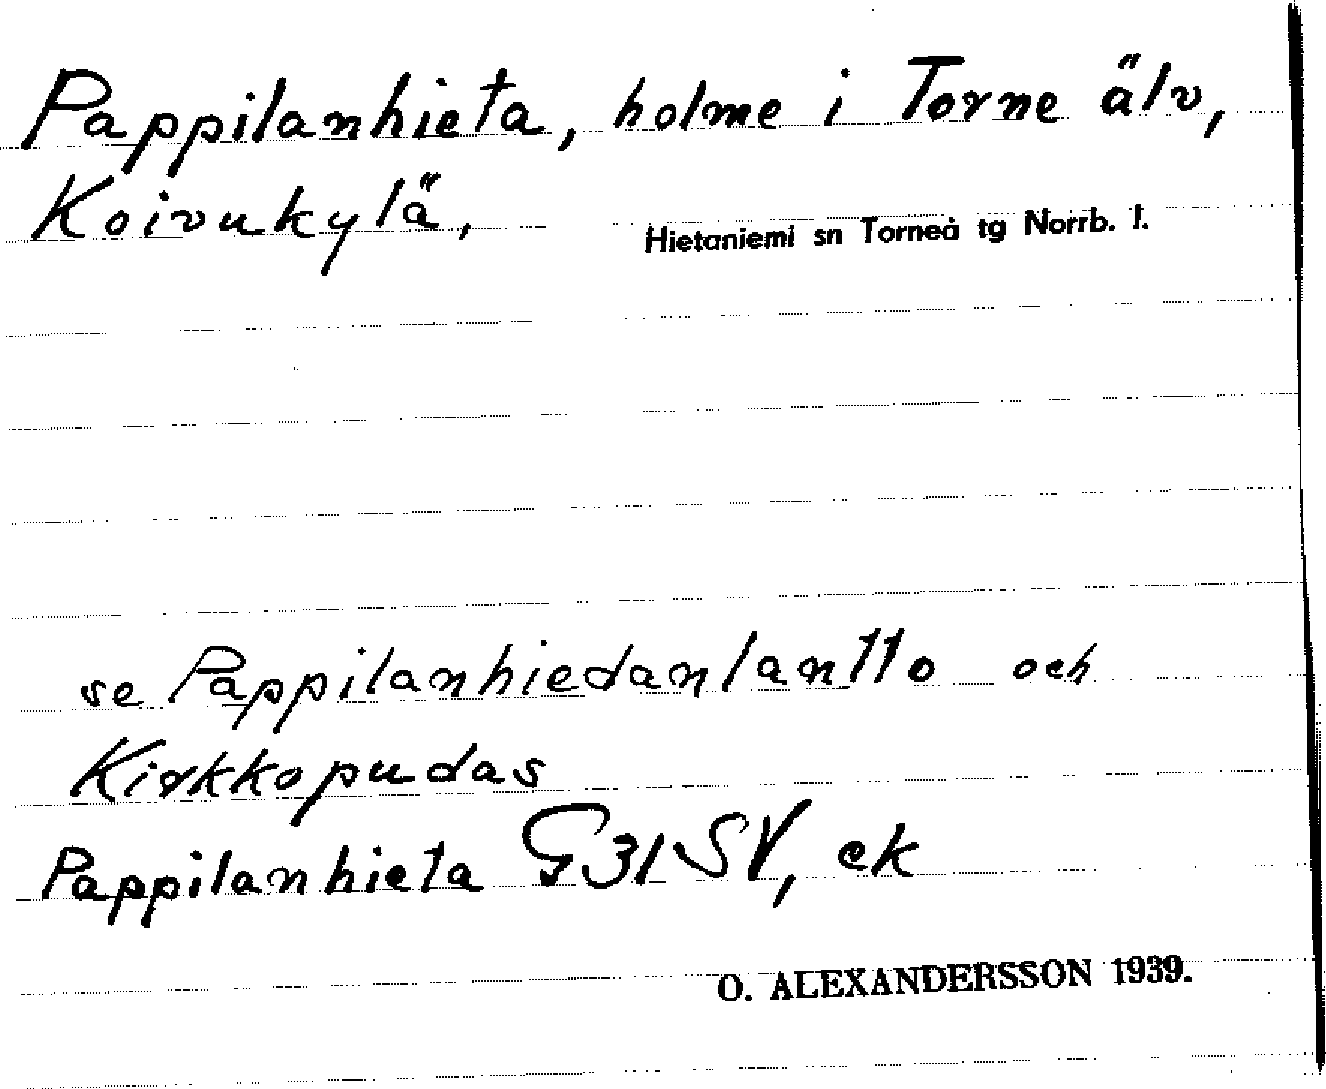 Pappilanhieta, holme i Torne älv,
Koivukylä, Hietaniemi sn Torneå tg Norrb. l.
se Pappilanhiedanlantto och
Kirkkopudas
Pappilanhieta G31SV, ek
O. ALEXANDERSSON 1939.